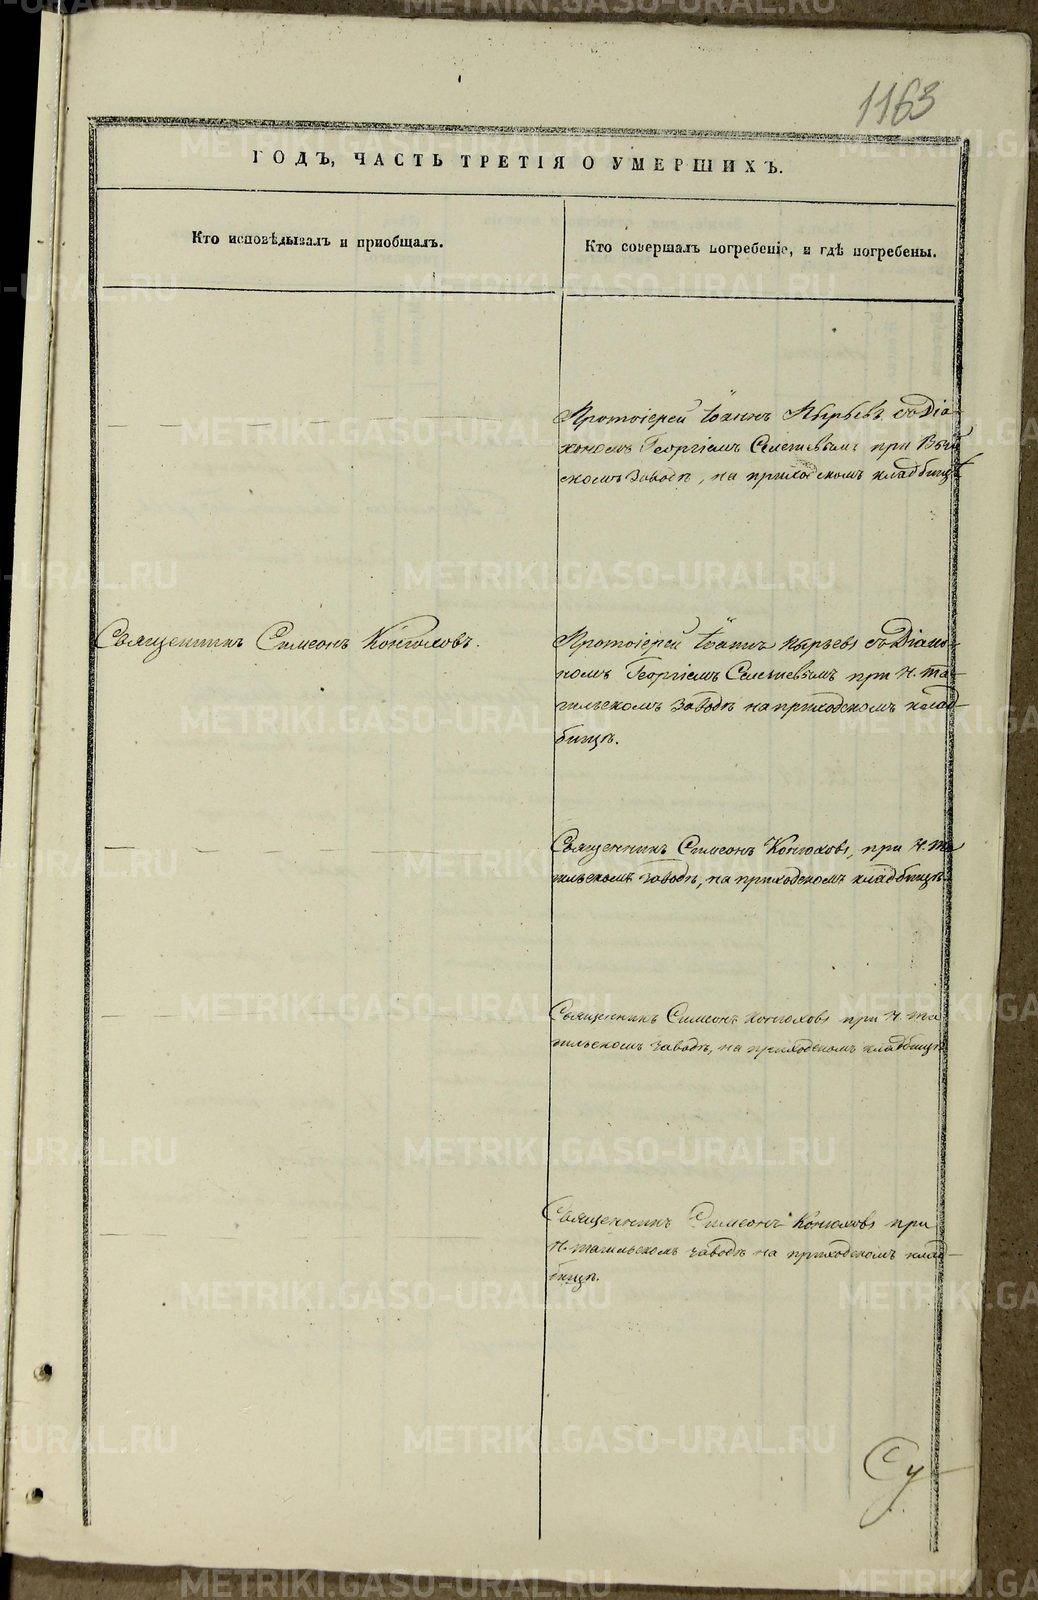 1163
ГОДЪ, ЧАСТЬ ТРЕТІЯ О УМЕРШИХЪ.
Кто исповѣдывалъ и пріобщалъ.
Кто совершалъ погребеніе, и гдѣ погребены.
Протоіерей Іоаннъ Пырьевъ съ Діа-
кономъ Георгіемъ при Вый
скомъ Заводѣ, на приходскомъ кладбищѣ
Священникъ Симеонъ Конюховъ.
Протоіерей Іоаннъ Пырьевъ съ Діако-
номъ Георгіемъ при Н. Та-
гильскомъ Заводѣ на приходскомъ клад-
бищѣ.
Священникъ Симеонъ Конюховъ, при Н. Та
гильскомъ Заводѣ, на приходскомъ кладбищѣ.
Священникъ Симеонъ Конюховъ при Н. Та
гильскомъ Заводѣ, на приходскомъ кладбищѣ
Священникъ Симеонъ Конюховъ при
Н. Тагильскомъ Заводѣ на приходскомъ клад-
бищѣ.
METRIKI.GASO-URAL.RU